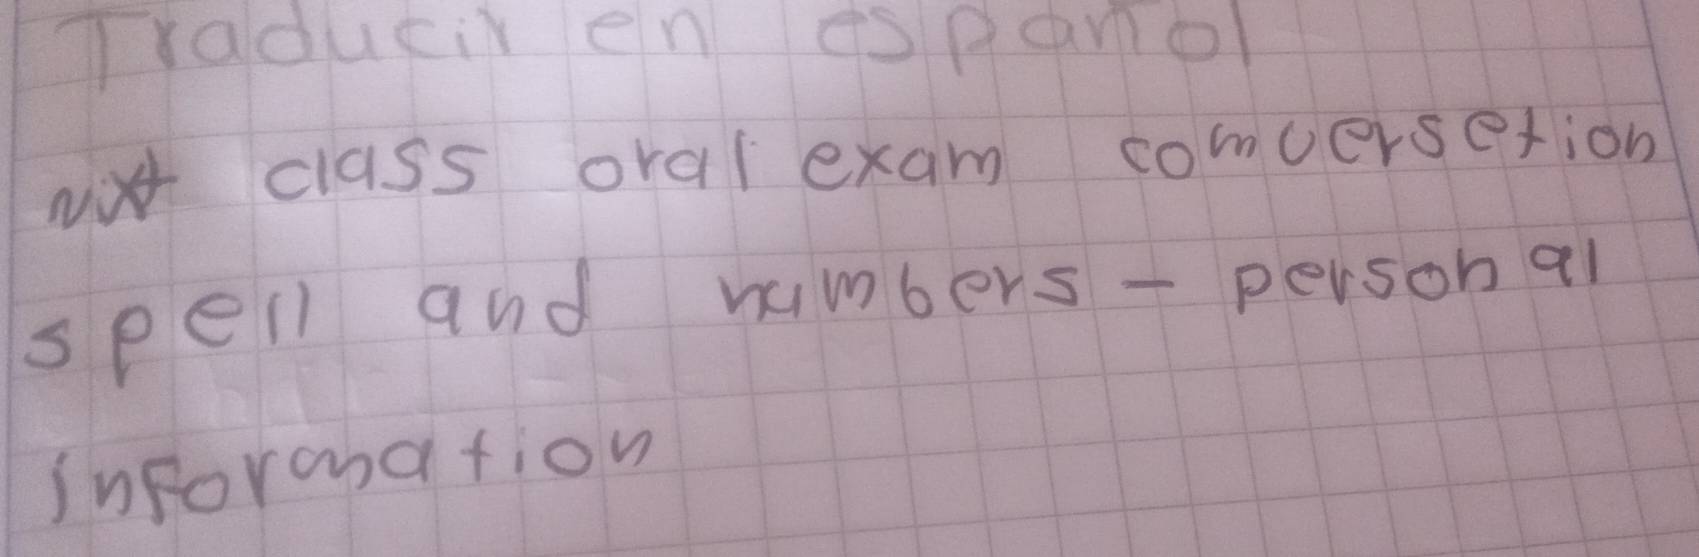 Traducir en español
nixt class oral exam comversetion
spell and numbers - personal
information